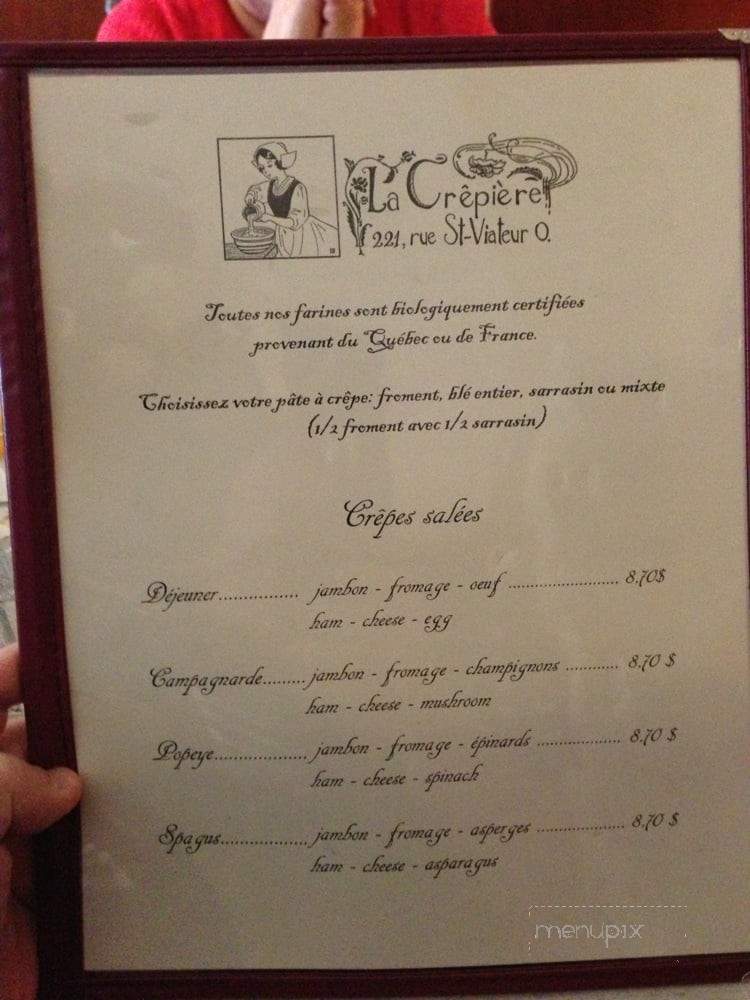 La Crêpière
221, rue St-Viateur O.
Toutes nos farines sont biologiquement certifiées
provenant du Québec ou de France.
Choisissez votre pâte à crêpe: froment, blé entier, sarrasin ou mixte
(1/2 froment avec 1/2 sarrasin)
Crêpes salées
Déjeuner................ jambon - fromage - oeuf ...................... 8,70$
ham - cheese - egg
Campagnarde......... jambon - fromage - champignons ........... 8,70 $
ham - cheese - mushroom
Popeye................... jambon - fromage - épinards ................. 8,70 $
ham - cheese - spinach
Spagus.................. jambon - fromage - asperges .................. 8,70 $
ham - cheese - asparagus
menupix